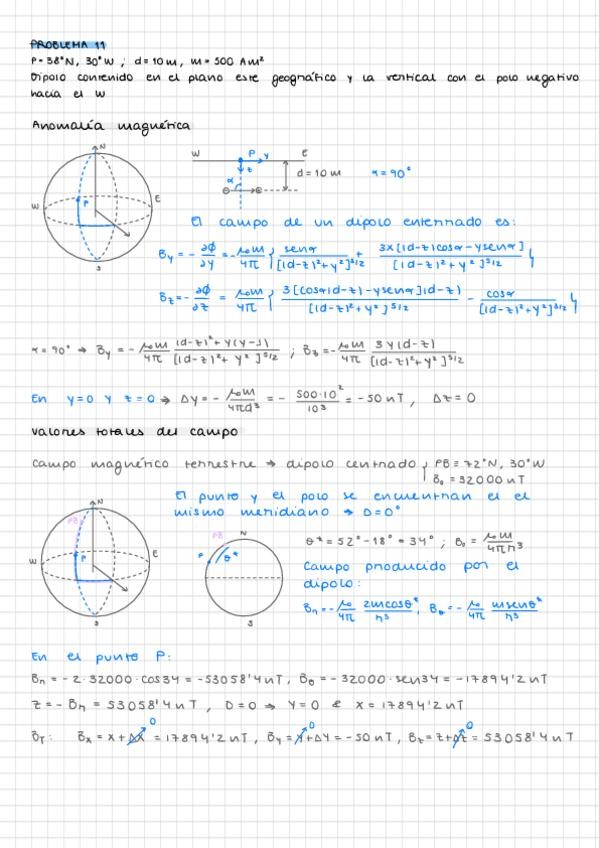 PROBLEMA 11
P = 38°N, 30°W ; d = 10 m, m = 500 Am²
Dipolo contenido en el plano este geográfico y la vertical con el polo negativo
hacia el W
Anomalía magnética
N
W P y E
z
α
d = 10 m
α = 90°
W P E
S
El campo de un dipolo enterrado es:
By = - ∂ϕ/∂y = - μ₀m/4π { senα/[(d-z)²+y²]^3/2 + 3x[(d-z)cosα-ysenα]/[(d-z)²+y²]^5/2 }
Bz = - ∂ϕ/∂z = μ₀m/4π { 3[cosα(d-z)-ysenα](d-z)/[(d-z)²+y²]^5/2 - cosα/[(d-z)²+y²]^3/2 }
α = 90° → By = - μ₀m/4π (d-z)²+y(y-3)/[(d-z)²+y²]^5/2 ; Bz = - μ₀m/4π 3y(d-z)/[(d-z)²+y²]^5/2
En y=0 y z=0 → Δy = - μ₀m/4πd³ = - 500·10²/10³ = -50 nT, Δz = 0
Valores totales del campo
Campo magnético terrestre → dipolo centrado { PB ≡ 72°N, 30°W
B₀ = 32000 nT
El punto y el polo se encuentran el el
mismo meridiano → D=0°
N
PB
W P E
S
PB N
P θ*
S
θ* = 52° - 18° = 34° ; B₀ = μ₀m/4πr³
Campo producido por el
dipolo:
Br = - μ₀/4π 2mcosθ*/r³, Bθ = - μ₀/4π msenθ*/r³
En el punto P:
Br = -2·32000·cos34 = -53058'4 nT, Bθ = -32000·sen34 = -17894'2 nT
Z = -Br = 53058'4 nT, D=0 ⇒ Y=0 & X = 17894'2 nT
BT: Bx = X+ΔX⁰ = 17894'2 nT, By = Y⁰+ΔY = -50 nT, Bz = Z+ΔZ⁰ = 53058'4 nT